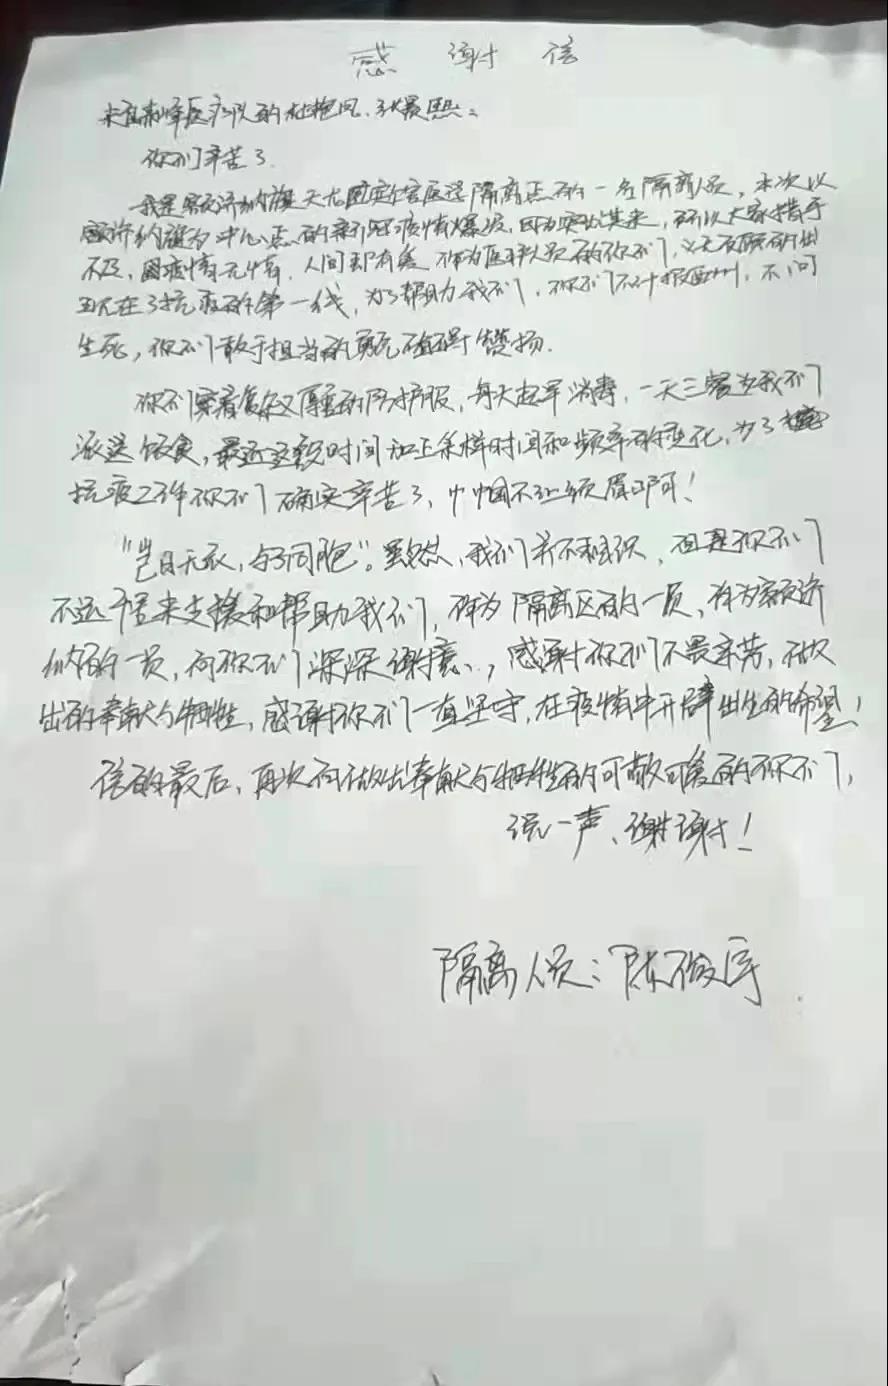 感谢信
来自赤峰医疗队的杜艳凤、张晨熙:
你们辛苦了.
我是额济纳旗天龙固定宿医这隔离点的一名隔离人员,本次以
额济纳旗为中心点的新冠疫情爆发,因为突如其来,所以大家措手
不及,因疫情无情,人间却有爱,作为医护人员的你们,义无反顾的出
现在了抗疫的第一线,为了帮助我们,你们不计报酬,不问
生死,你们敢于担当的勇气值得赞扬.
你们穿着复杂又厚重的防护服,每天起早消毒,一天三餐为我们
派送饭食,最近这段时间加上采样时间和频率的变化,为了
抗疫工作你们确实辛苦了,巾帼不让须眉啊!
"岂曰无衣,与子同胞"。虽然,我们并不相识,但是你们
不远千里来支援和帮助我们,作为隔离区的一员,作为额济
纳的一员,向你们深深谢意,感谢你们不畏辛劳,做
出的奉献与牺牲,感谢你们一直坚守,在疫情中开辟出生的希望!
信的最后,再次向做出奉献与牺牲的可敬可爱的你们,
说一声、谢谢!
隔离人员:陈俊宇